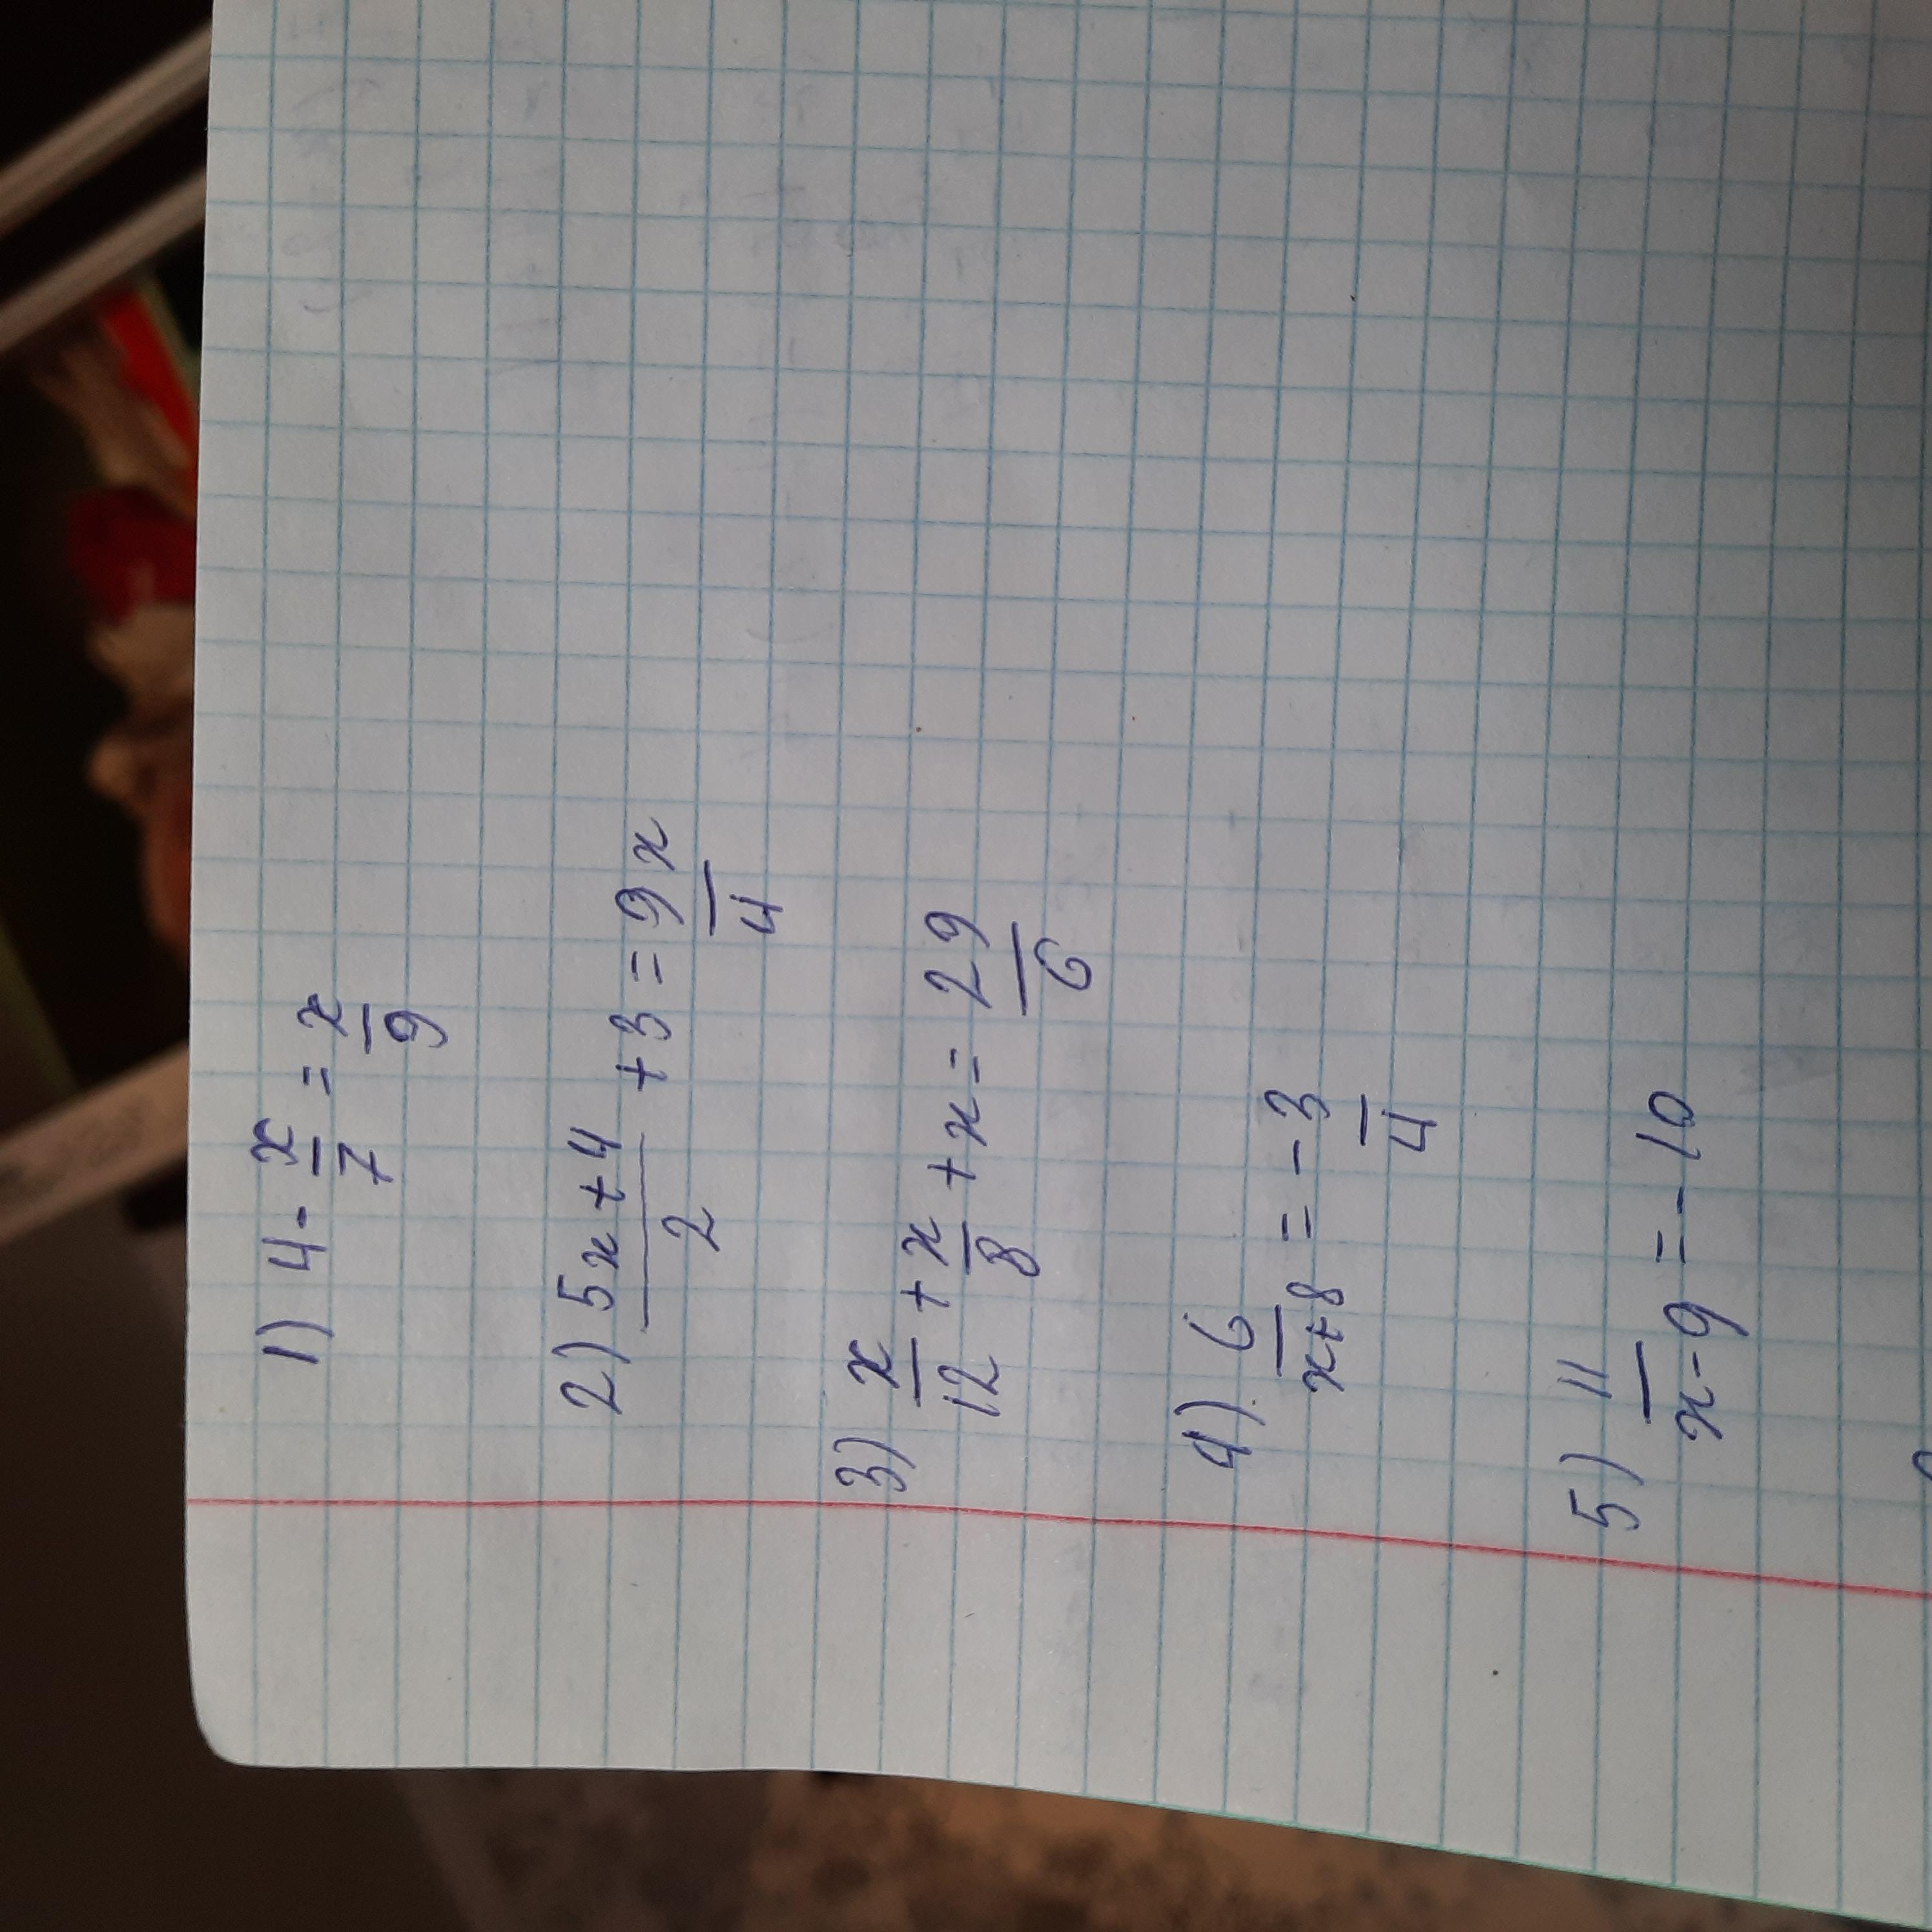 1) 4 - x/7 = x/9
2) (5x+4)/2 + 3 = 9x/4
3) x/12 + x/8 + x = 29/6
4) 6/(x+8) = -3/4
5) 11/(x-9) = -10